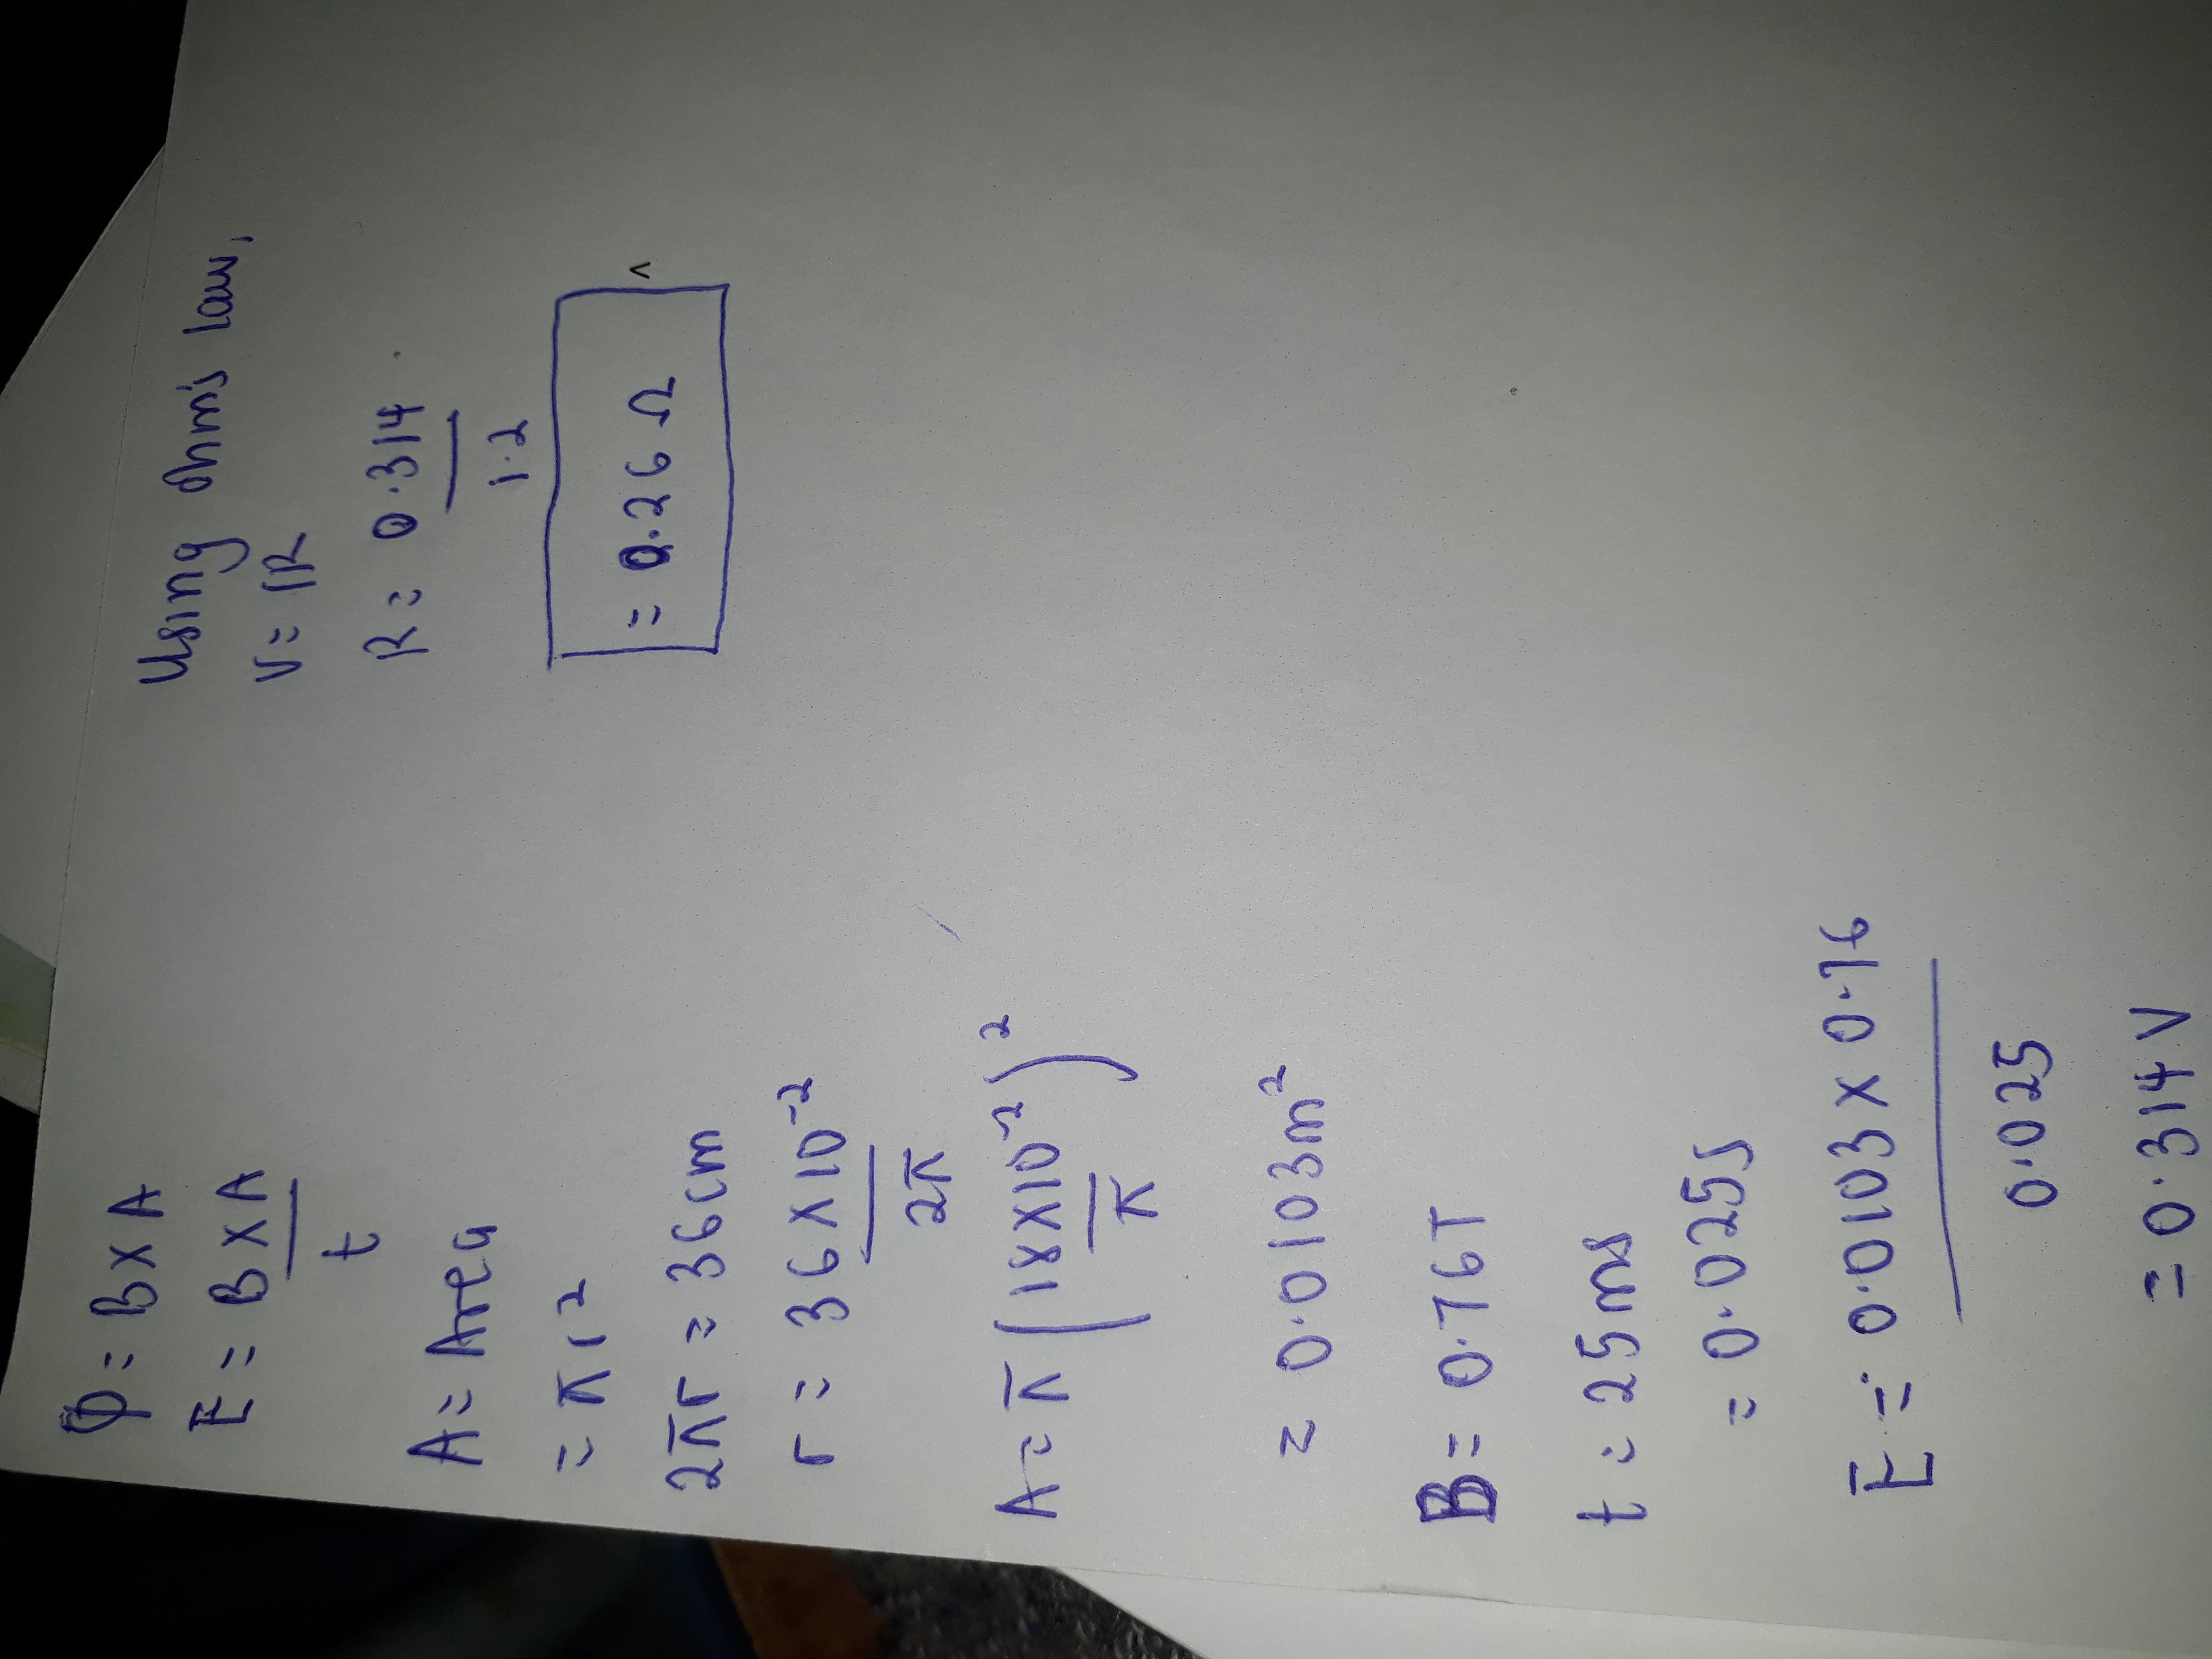 Φ = B x A
E = B x A
t
A = Area
= π r²
2πr = 36cm
r = 36 x 10⁻²
2π
A = π (18 x 10⁻² / π)²
= 0.0103m²
B = 0.76T
t = 25 ms
= 0.025s
E = 0.0103 x 0.76
0.025
= 0.314V
Using Ohm's law,
V = IR
R = 0.314
1.2
= 0.26 Ω